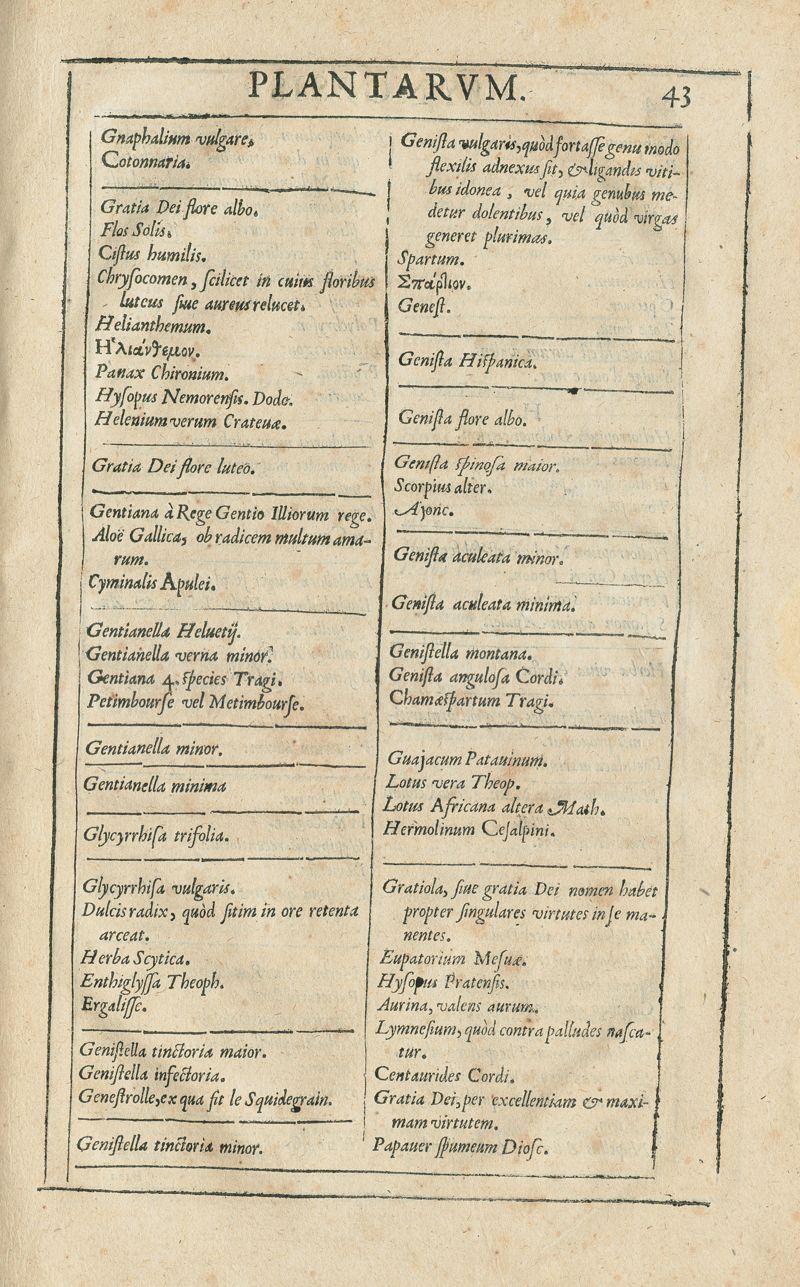 PLANTARVM.
43
Gnaphalium vulgare.
Cotonnaria.
Gratia Dei flore albo.
Flos Solis.
Ciſtus humilis.
Chryſocomen, ſcilicet in cuius floribus
luteus ſiue aureus relucet.
Helianthemum.
Ηʽλιάνθεμον.
Panax Chironium.
Hyſopus Nemorenſis. Dodo.
Helenium verum Crateuæ.
Gratia Dei flore luteo.
Gentiana à Rege Gentio Illiorum rege.
Aloë Gallica, ob radicem multum ama-
rum.
Cyminalis Apulei.
Gentianella Heluetij.
Gentianella verna minor.
Gentiana 4. ſpecies Tragi.
Petimbourſe vel Metimbourſe.
Gentianella minor.
Gentianella minima
Glycyrrhiſa trifolia.
Glycyrrhiſa vulgaris.
Dulcis radix, quòd ſitim in ore retenta
arceat.
Herba Scytica.
Enthiglyſſa Theoph.
Ergaliſſe.
Geniſtella tinctoria maior.
Geniſtella infectoria.
Geneſtrolle, ex qua fit le Squidegrain.
Geniſtella tinctoria minor.
Geniſta vulgaris, quòd fortaſſe genu modo
flexilis adnexus ſit, & ligandis viti-
bus idonea, vel quia genubus me-
detur dolentibus, vel quòd virgas
generet plurimas.
Spartum.
Σπάρτιον.
Geneſt.
Geniſta Hiſpanica.
Geniſta flore albo.
Geniſta ſpinoſa maior.
Scorpius alter.
Ajonc.
Geniſta aculeata minor.
Geniſta aculeata minima.
Geniſtella montana.
Geniſta anguloſa Cordi.
Chamæſpartum Tragi.
Guajacum Patauinum.
Lotus vera Theop.
Lotus Africana altera Math.
Hermolinum Ceſalpini.
Gratiola, ſiue gratia Dei nomen habet
propter ſingulares virtutes in ſe ma-
nentes.
Eupatorium Meſuæ.
Hyſopus Pratenſis.
Aurina, valens aurum.
Lymneſium, quòd contra palludes naſca-
tur.
Centaurides Cordi.
Gratia Dei, per excellentiam & maxi-
mam virtutem.
Papauer ſpumeum Dioſc.